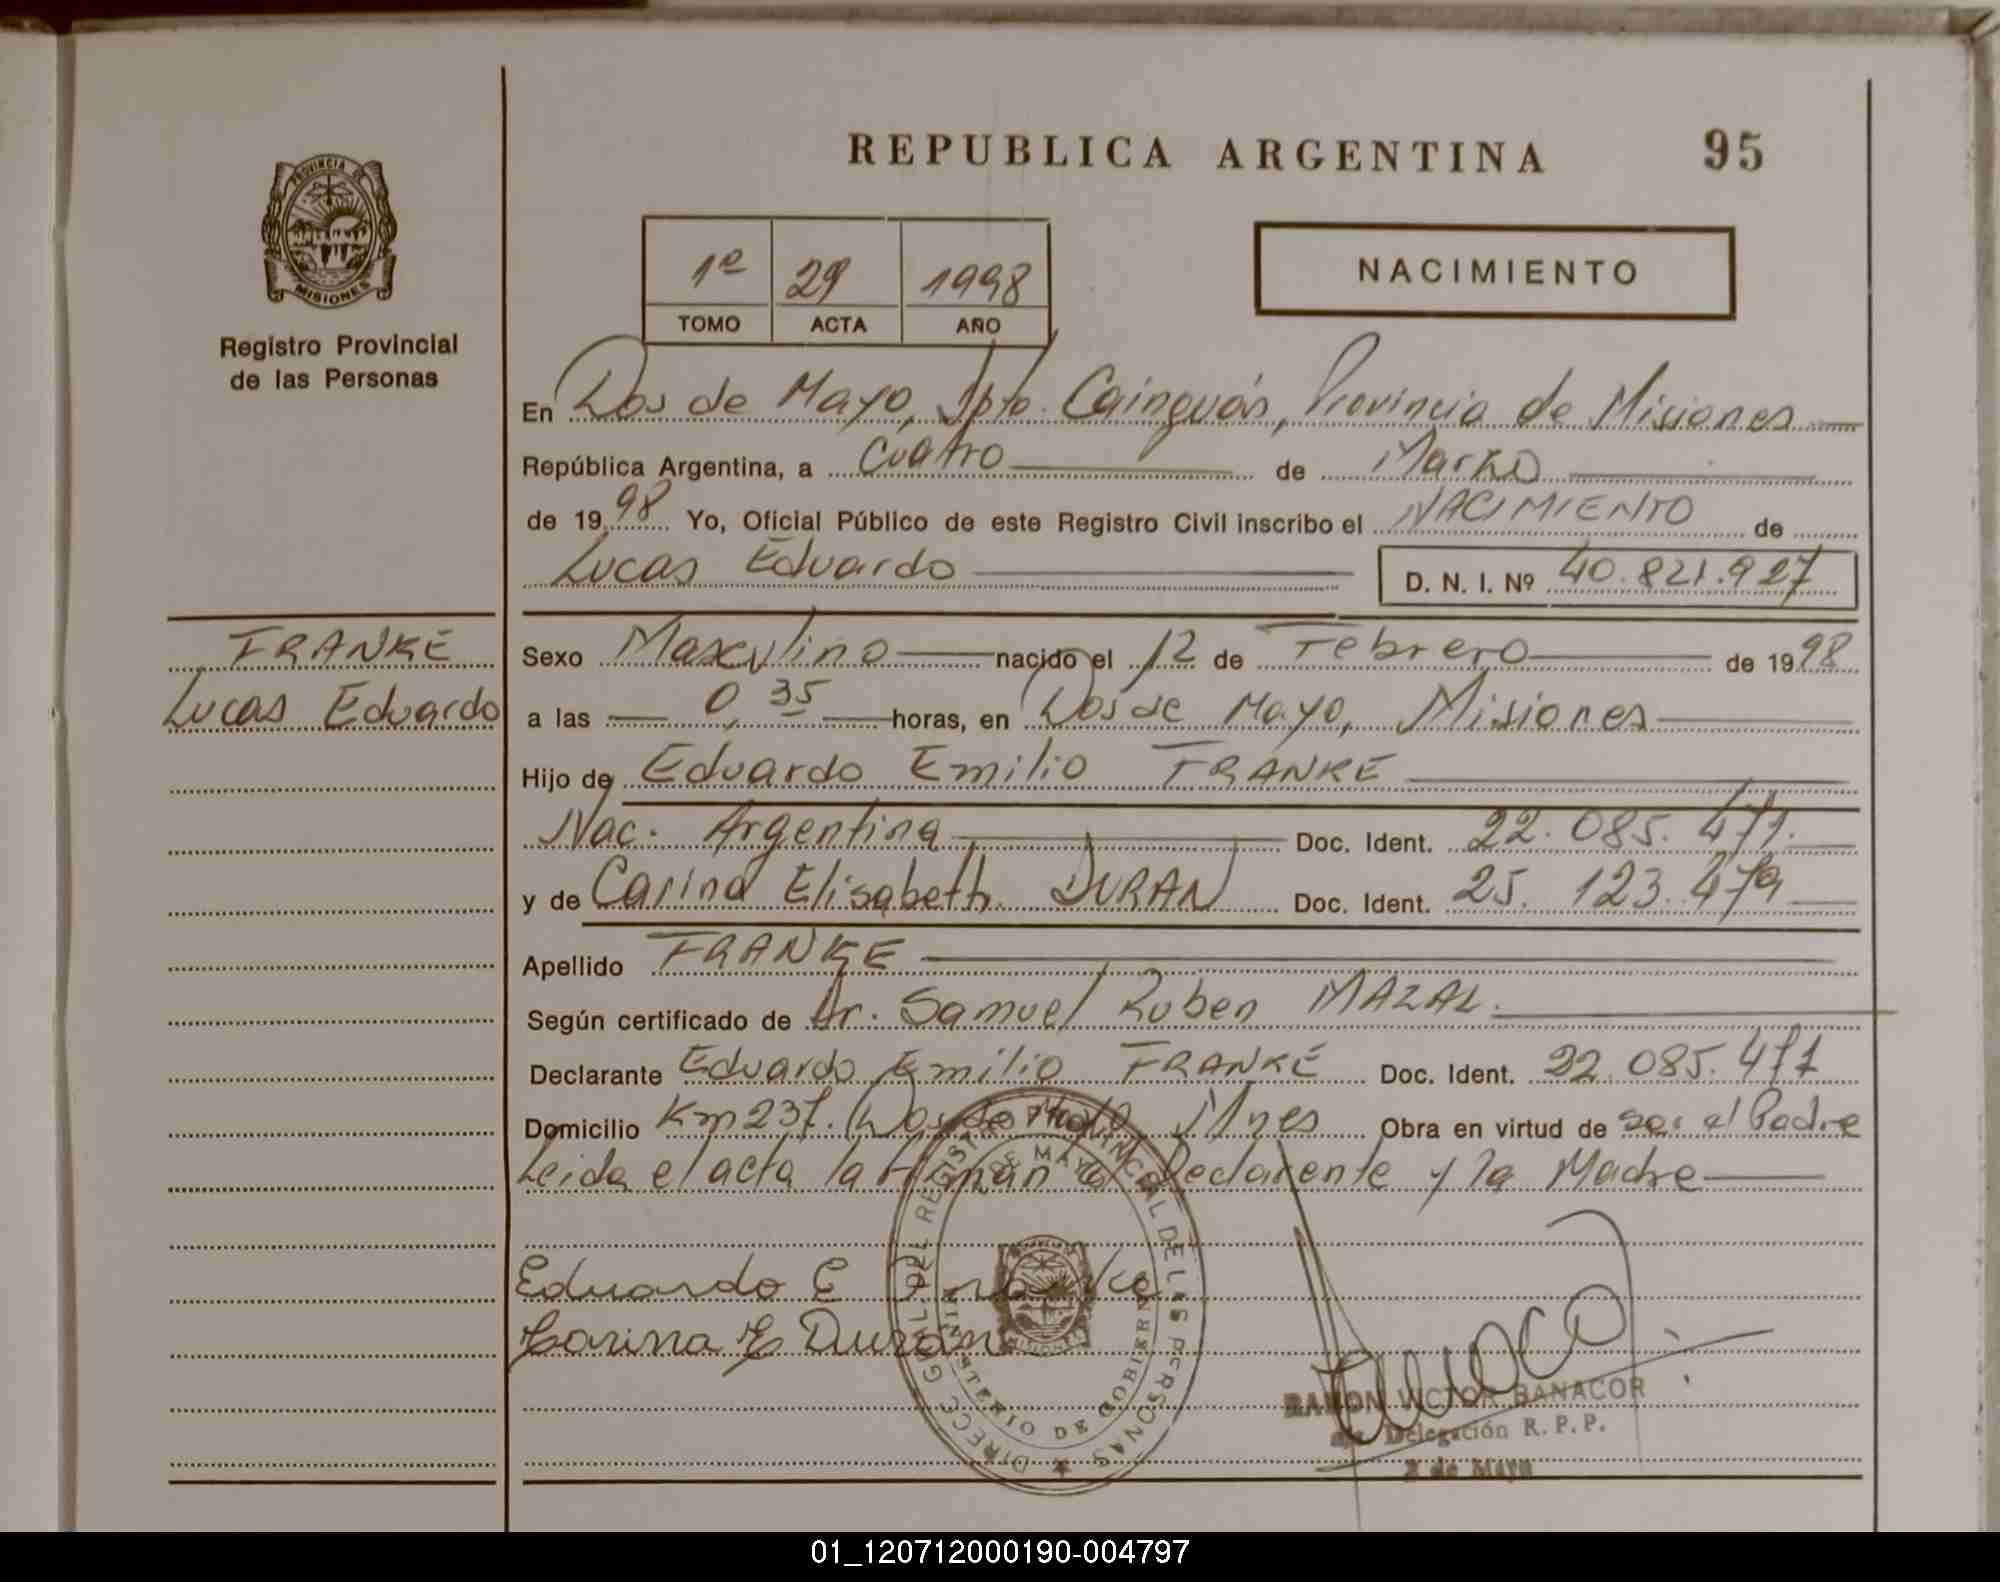 REPUBLICA ARGENTINA 95
PROVINCIA DE
MISIONES
Registro Provincial
de las Personas
1º 29 1998
TOMO ACTA AÑO
NACIMIENTO
En Dos de Mayo, Dpto. Cainguás, Provincia de Misiones
República Argentina, a Cuatro de Marzo
de 1998 Yo, Oficial Público de este Registro Civil inscribo el NACIMIENTO de
Lucas Eduardo D. N. I. Nº 40.821.927
FRANKE
Lucas Eduardo
Sexo Masculino nacido el 12 de Febrero de 1998
a las 0,35 horas, en Dos de Mayo, Misiones
Hijo de Eduardo Emilio FRANKE
Nac. Argentina Doc. Ident. 22.085.471.
y de Carina Elisabeth DURAN Doc. Ident. 25.123.479
Apellido FRANKE
Según certificado de Dr. Samuel Ruben MAZAL.
Declarante Eduardo Emilio FRANKE Doc. Ident. 22.085.471
Domicilio Km 237. Dos de Mayo Mnes Obra en virtud de ser el Padre
Leida el acta la firman el Declarente y la Madre
Eduardo E Franke
Carina E Duran
DIRECC. GRAL. DEL REGISTRO PROVINCIAL DE LAS PERSONAS
DE MAYO
MINISTERIO DE GOBIERNO
RAMON VICTOR BANACOR
Delegación R. P. P.
2 de Mayo
01_120712000190-004797